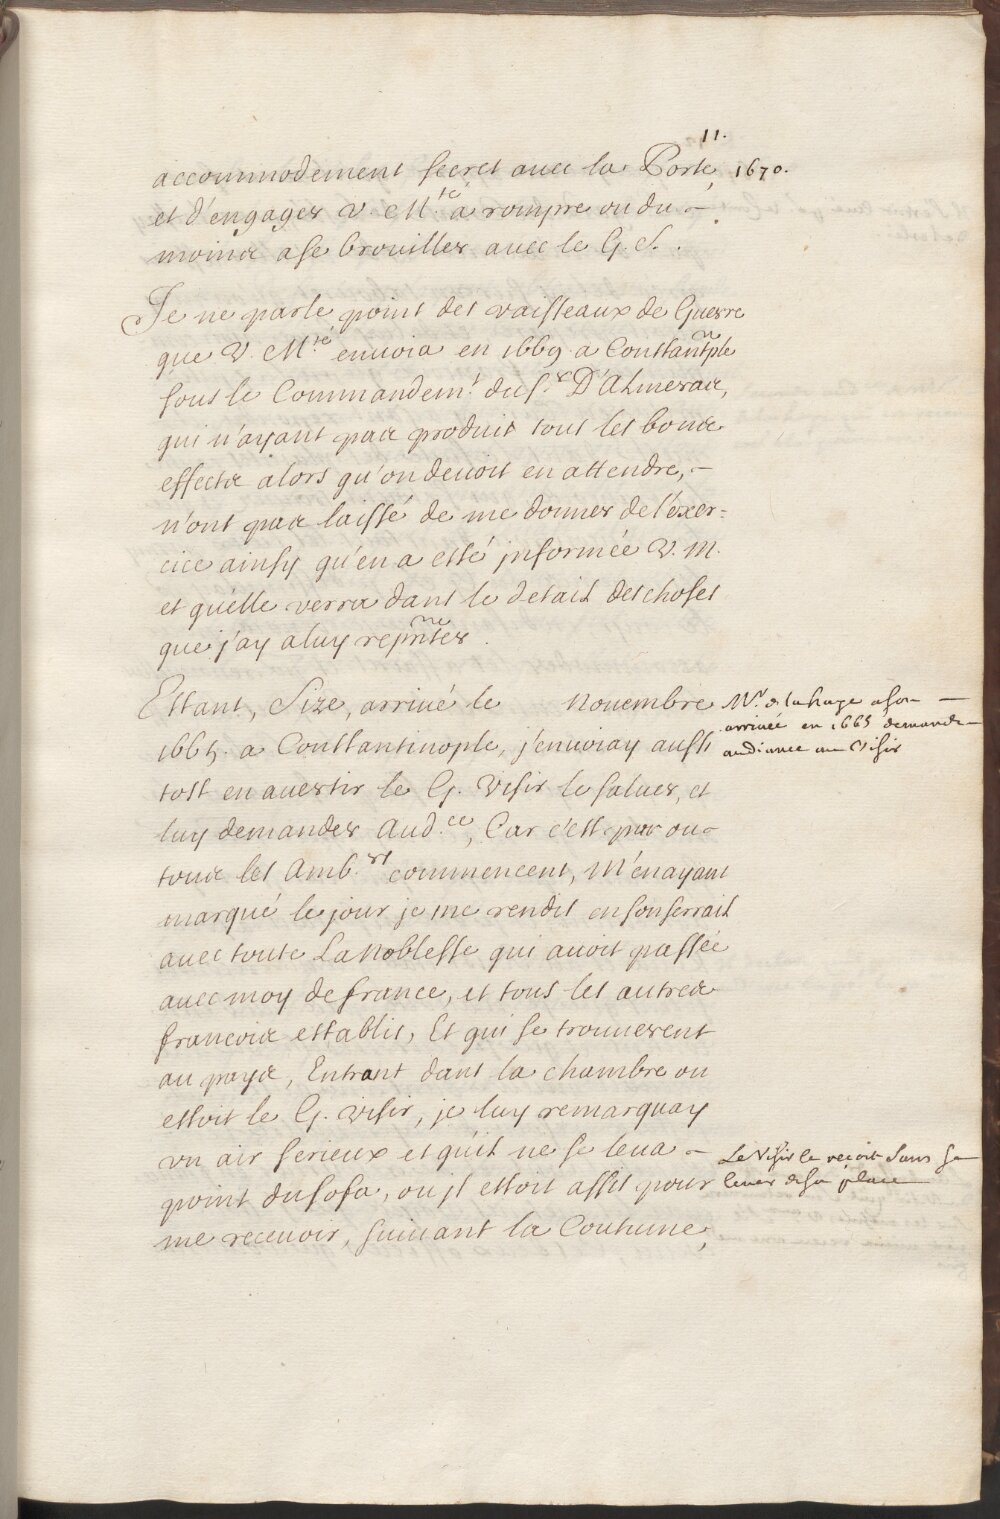 11.
1670.
accommodement secret avec la Porte,
et d'engager V. M.té a rompre ou du
moins a se brouiller avec le G. S.
Je ne parle point des vaisseaux de Guerre
que V. M.té envoia en 1669 a Constantnple
sous le Commandem.t du S.r D'Almeras,
qui n'ayant pas produit tous les bons
effects alors qu'on devoit en attendre,
n'ont pas laissé de me donner de l'éxer=
cice ainsy qu'en a esté jnformée V. M.
et qu'elle verra dans le detail des choses
que j'ay a luy repñter.
Estant, Sire, arrivé le        Novembre
1665. a Constantinople, j'envoiay aussi
tost en avertir le G. Visir le saluer, et
luy demander Aud.ce, Car c'est par ou
tous les Amb.rs commencent, M'en ayant
marqué le jour je me rendis en son serrail
avec toute La Noblesse qui avoit passée
avec moy de france, et tous les autres
francois establis, Et qui se trouverent
au pays, Entrant dans la chambre ou
estoit le G. visir, je luy remarquay
vn air serieux et qu'il ne se leva
point du sofa, ou jl estoit assis pour
me recevoir, suivant la Coutume,
Mr. de la haye a son
arrivée en 1665 demande
audiance au Visir
Le Visir le reçoit sans se
lever de sa place